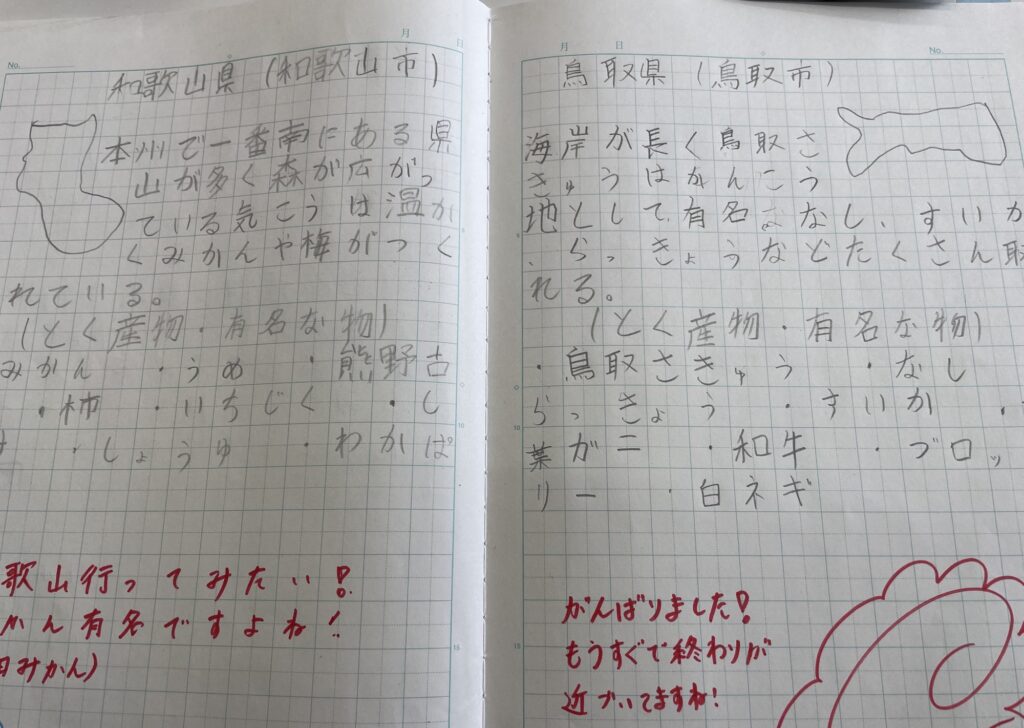 月 日
No.
和歌山県(和歌山市)
本州で一番南にある県
山が多く森が広がっ
ている気こうは温か
くみかんや梅がつく
れている。
(とく産物・有名な物)
みかん ・うめ ・熊野古
・柿 ・いちじく ・し
・しょうゆ ・わかぱ
歌山行ってみたい!
かん有名ですよね!
田みかん)
15
月 日
No.
鳥取県(鳥取市)
海岸が長く鳥取さ
きゅうはかんこう
地として有名 なし、すいか
、らっきょうなどたくさん取
れる。
(とく産物・有名な物)
・鳥取さきゅう ・なし
らっきょう ・すいか ・
葉ガニ ・和牛 ・ブロッ
リー ・白ネギ
がんばりました!
もうすぐで終わりが
近づいてますね!
5
10
15